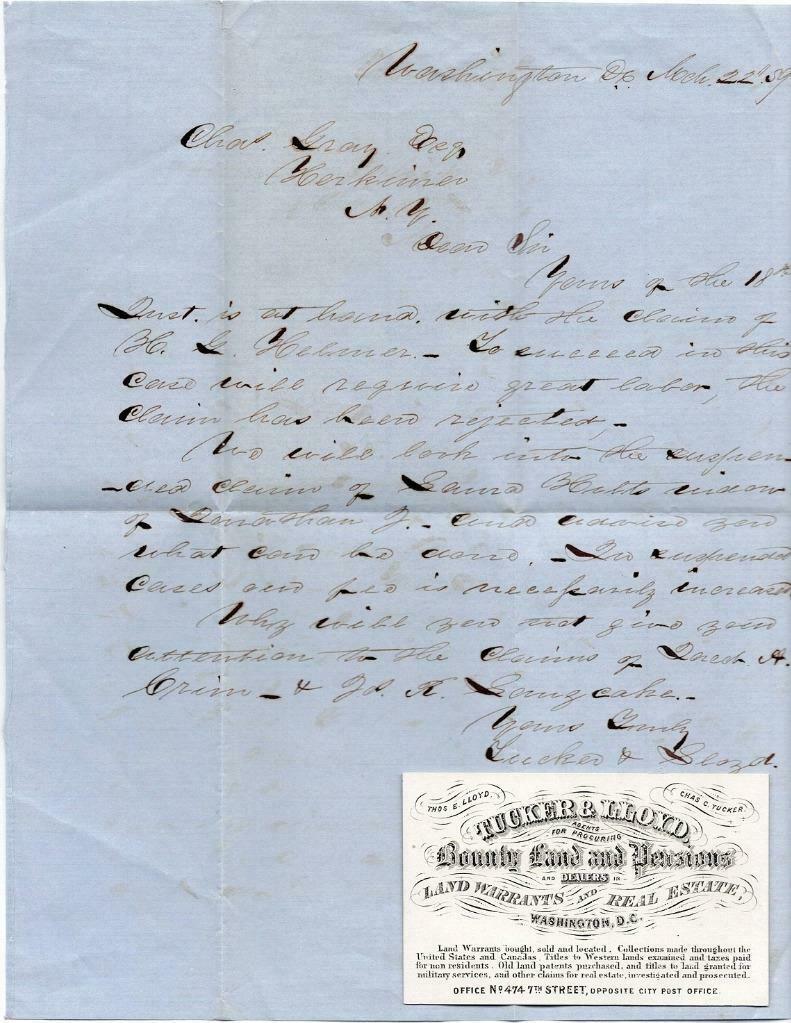 Washington D.C. Mch. 22d. 59
Chas. Gray Esq
Herkimer
N. Y.
Dear Sir
Yours of the 18th
Inst. is at hand. with the claim of
H. G. Helmer. – To succeed in this
case will require great labor, the
claim has been rejected, –
We will look into the suspen-
-ded claim of Laura widow
of Jonathan J. – and advise you
what can be done. – In suspended
cases our fee is necessarily increased
Why will you not give your
attention to the claims of A.
Crim – & Js. R.
Yours Truly
Tucker & Lloyd.
THOS E. LLOYD.
CHAS C. TUCKER.
TUCKER & LLOYD,
AGENTS
FOR PROCURING
Bounty Land and Pensions
AND DEALERS IN
LAND WARRANTS AND REAL ESTATE,
WASHINGTON, D.C.
Land Warrants bought, sold and located. Collections made throughout the
United States and Canadas. Titles to Western lands examined and taxes paid
for non residents. Old land patents purchased, and titles to land granted for
military services, and other claims for real estate, investigated and prosecuted.
OFFICE No 474 7TH STREET, OPPOSITE CITY POST OFFICE.